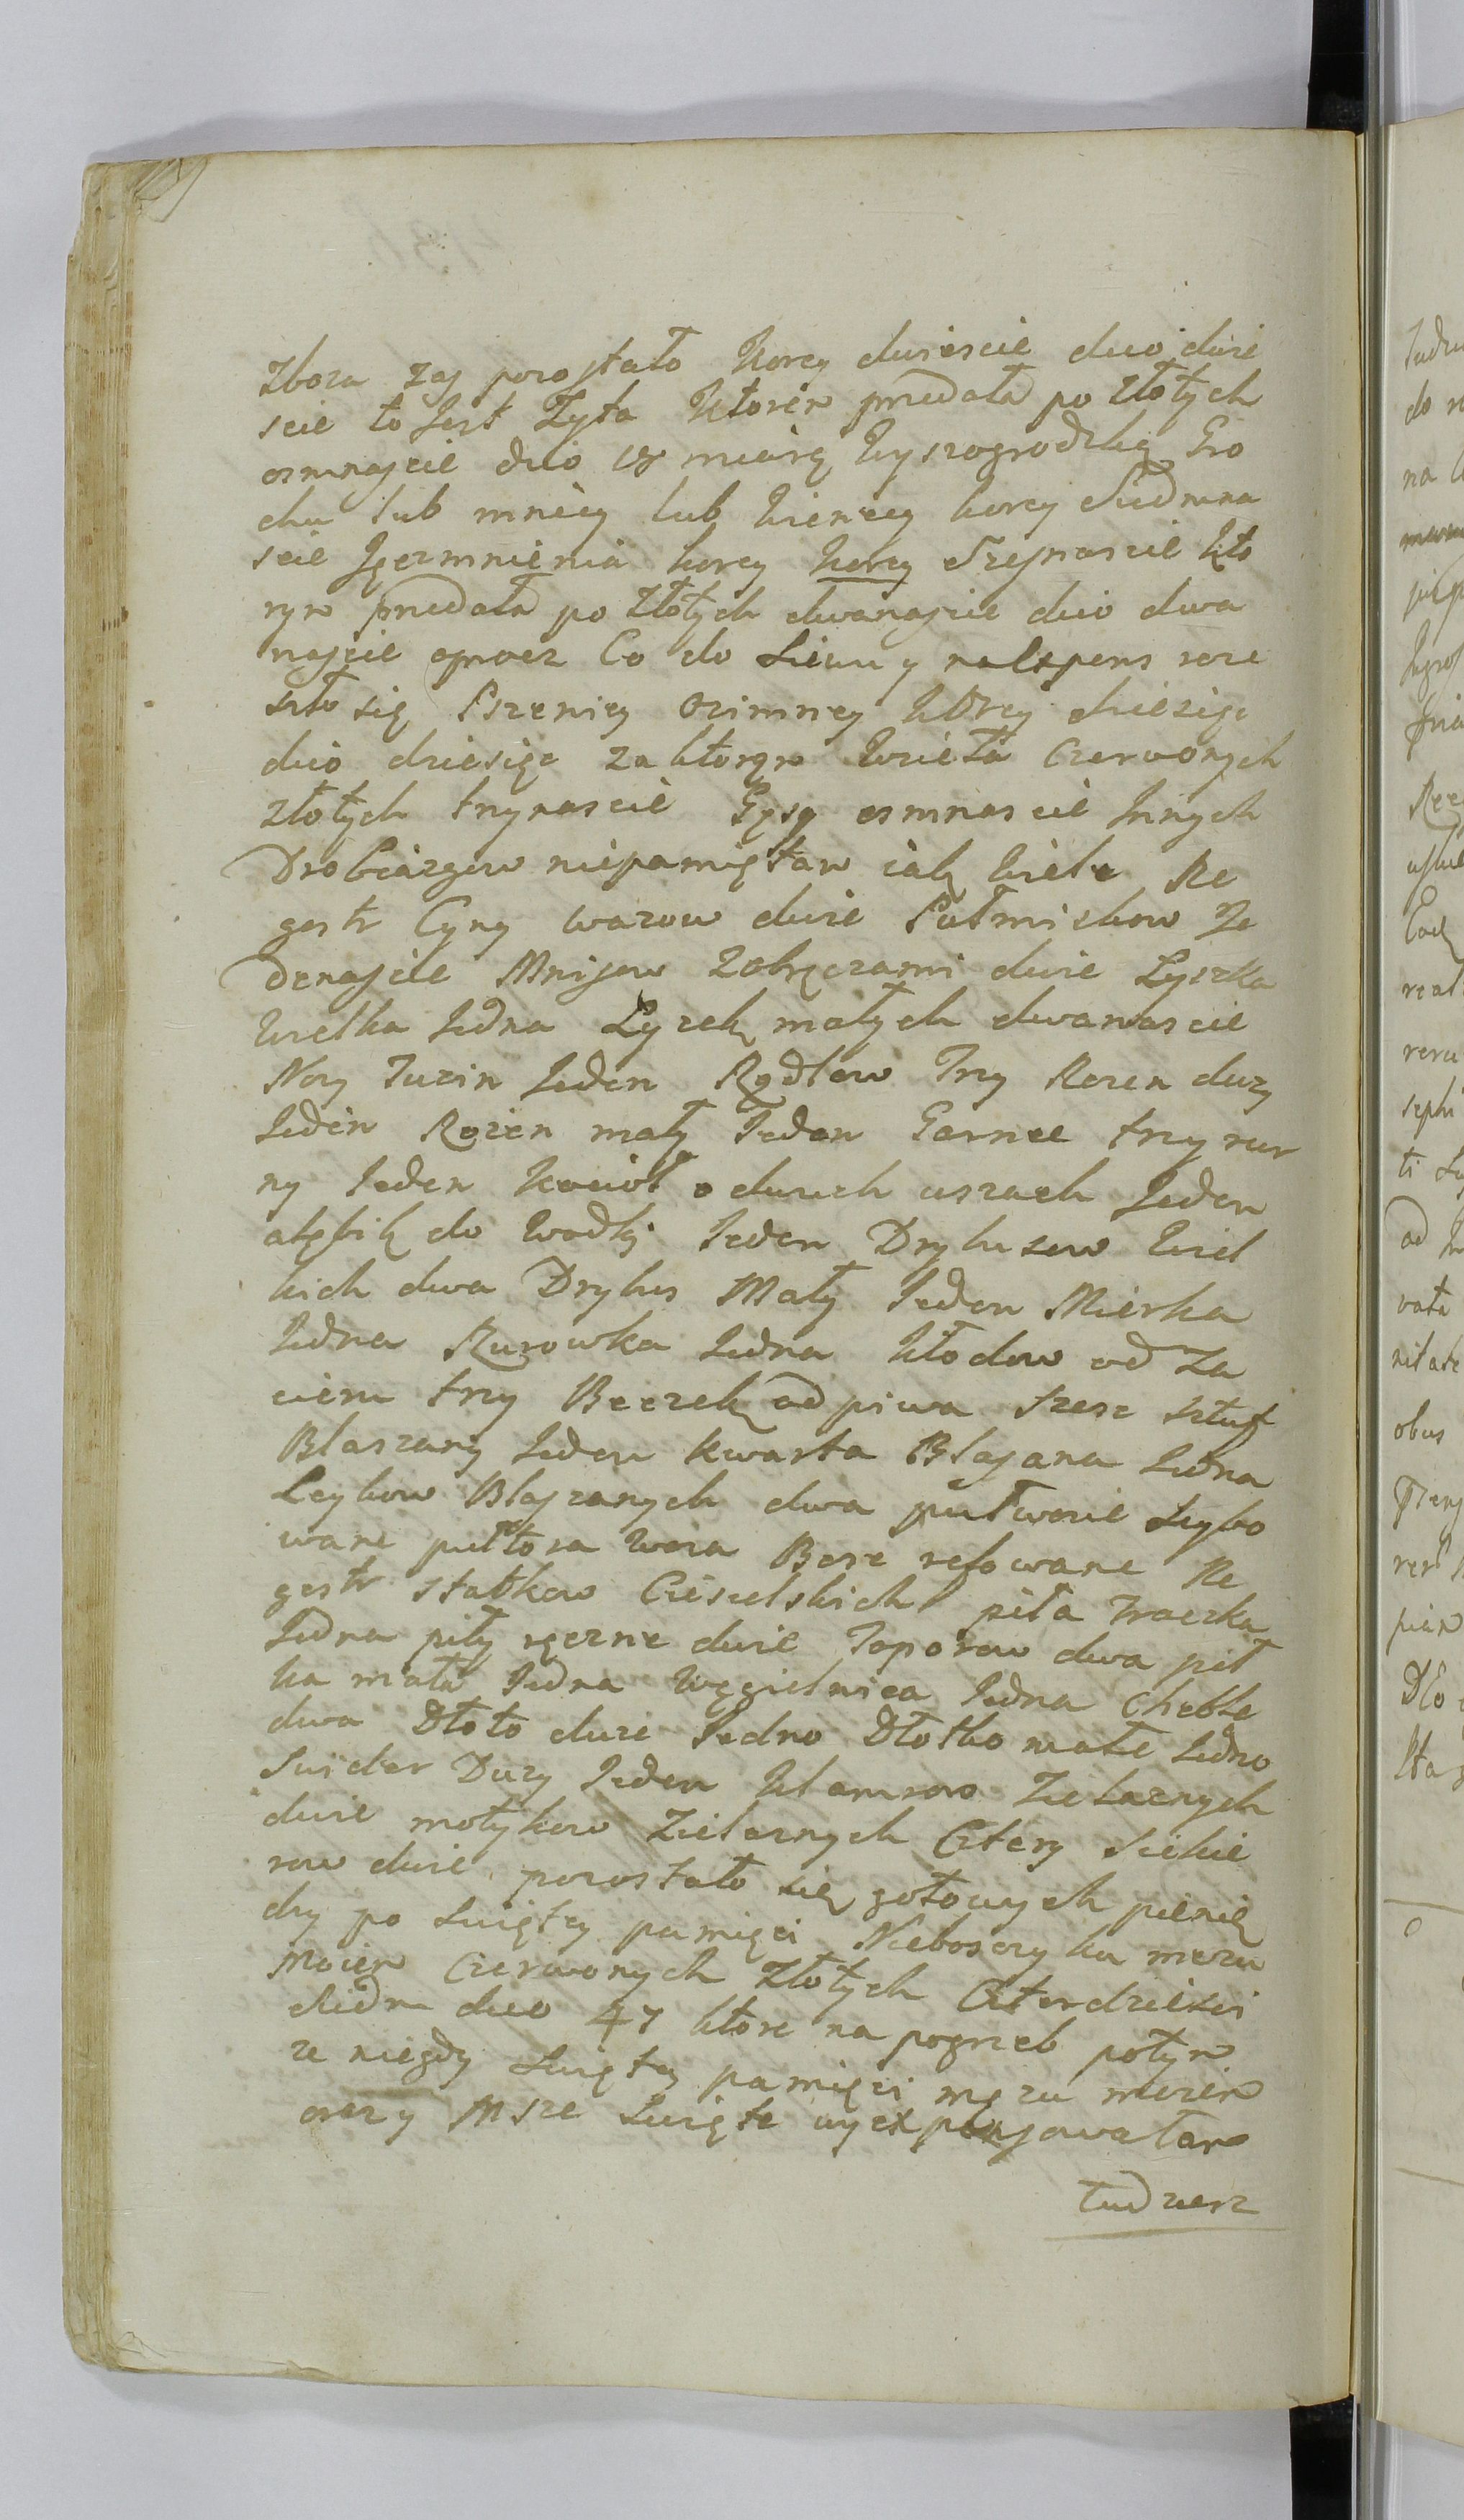 Zboza zaś pozostało korcy dwieście dwo dwie
scie to Jest Zyta Ktoren przedała po złotych
osmnaście dico 18 miarę Wyszogrodzką Gro
chu lub mniey lub Wiencey korcy Siedmna
scie Jęczmnienia korcy korcy Szesnascie kto
ryn przedała po złotych dwanaście dico dwa
naście oprocz Co do Siewu y na Expens roze
szło się Pszenicy ozimney korcy dziesięc
dico dziesięc za ktorąn Wzieła Czerwonych
złotych trzynascie Gęsy osmnascie Innych
Drobiazgow niepamiętan iak Wiele Re
gestr Cyny wazow dwie Pułmiskow Je
denaście Mnisow z obręczami dwie Łyszka
Wielka Jedna Łyzek małych dwanascie
Nozy Tuzin Jeden Rądlow Trzy Rozen duzy
Jeden Rozen mały Jeden Garnce trzy rur
ny Jeden Kocioł o dwuch uszach Jeden
alębik do Wodki Jeden Drybusow Wiel
kich dwa Drybus Mały Jeden Mierka
Jedna Rurowka Jedna kłodow od Za
cieru trzy Beczek od piwa szesc sztuf
Blaszany Jeden kwarta Blaszana Jedna
Leykow Blaszanych dwa pułwozie Szybo
wane pułtora woza Bose refowane Re
gestr statkow Ciesielskich piła Traczka
Jedna piły ręczne dwie Toporow dwa pił
ka mała Jedna Węgielnica Jedna Cheble
dwa Dłoto duze Jedno Dłotko małe Jedno
Swider Duzy Jeden klamrow Zielaznych
dwie motykow Zielaznych Cztery Siekie
row dwie pozostało się gotowych pienię
dzy po Swiętey pamięci Nieboszczyku męzu
Moien Czerwonych Złotych Czterdziesci
Siedm dico 47 ktore na pogrzeb potyn
ze niegdy Swiętey pamięci męzu moien
oraz y Msze Swięte wyexpensowałan
tudziesz